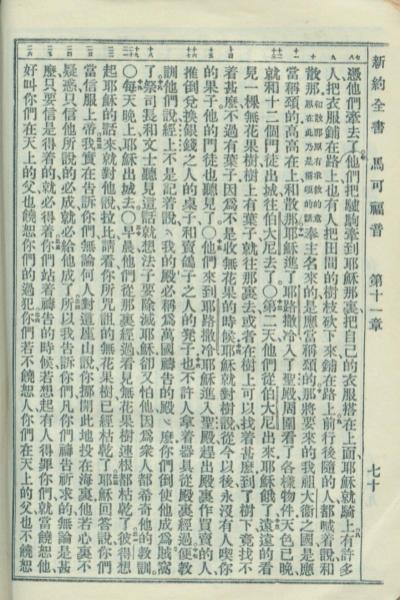 新約全書 馬可福音 第十一章 七十
憑他們牽去了他們把驢駒牽到耶穌那裏把自己的衣服搭在上面耶穌就騎上有許多
人把衣服鋪在路上也有人把田間的樹枝砍下來鋪在路上前行後隨的人都喊着說和
散那和散那原有求救的意思在此乃是稱頌的話奉主名來的是應當稱頌的那將要來的我祖大衞之國是應
當稱頌的高高在上和散那耶穌進了耶路撒冷入了聖殿周圍看了各樣物件天色已晚
就和十二個門徒出城往伯大尼去了○第二天他們從伯大尼出來耶穌餓了遠遠的看
見一棵無花果樹樹上有葉子就往那裏去或者在樹上可以找着甚麽到了樹下竟找不
着甚麽不過有葉子因爲不是收無花果的時候耶穌就對樹說從今以後永沒有人喫你
的果子他的門徒也聽見了○他們來到耶路撒冷耶穌進入聖殿趕出殿裏作買賣的人
推倒兌換銀錢之人的桌子和賣鴿子之人的凳子也不許人拿着器具從殿裏經過便教
訓他們說經上不是記着說我的殿必稱爲萬國禱告的殿麽你們倒使他成爲賊窩
了祭司長和文士聽見這話就想法子要除滅耶穌卻又怕他因爲衆人都希奇他的教訓
○每天晚上耶穌出城去○早晨他們從那裏經過看見無花果樹連根都枯乾了彼得想
起耶穌的話來就對他說拉比請看你所咒詛的無花果樹已經枯乾了耶穌回答說你們
當信服上帝我實在告訴你們無論何人對這座山說你挪開此地投在海裏他若心裏不
疑惑只信他所說的必成就必給他成了所以我告訴你們凡你們禱告祈求的無論是甚
麽只要信是得着的就必得着你們站着禱告的時候若想起有人得罪你們就當饒恕他
好叫你們在天上的父也饒恕你們的過犯你們若不饒恕人你們在天上的父也不饒恕